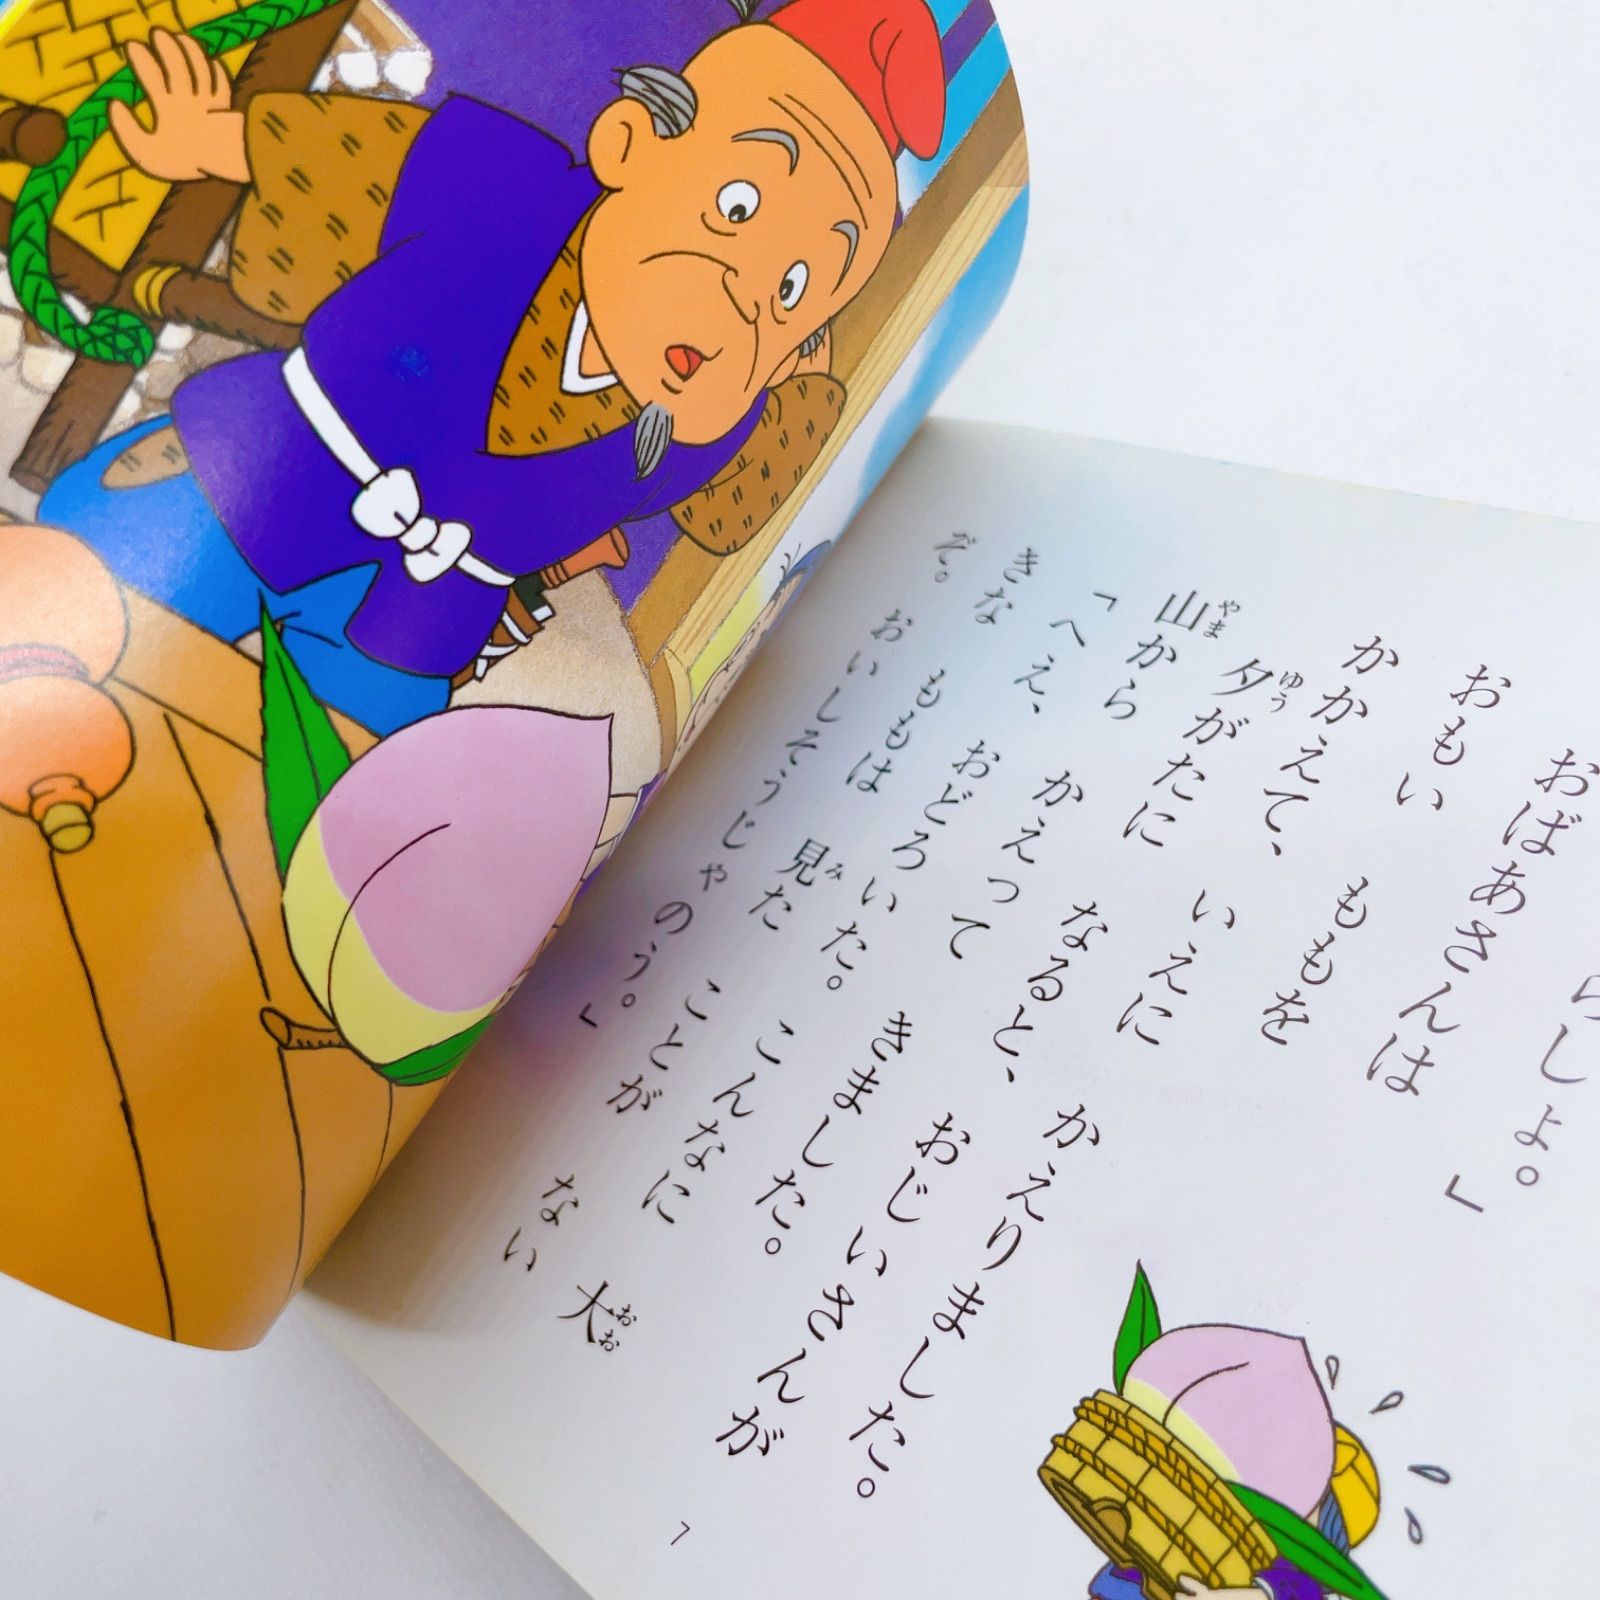 らしょ。」
おばあさんは
おもい ももを
かかえて、 いえに かえりました。
夕がたに なると、 おじいさんが
ゆう
山から かえって きました。
やま
「へえ、 おどろいた。 こんなに 大
おお
きな ももは 見た ことが ない
み
ぞ。 おいしそうじゃのう。」
7